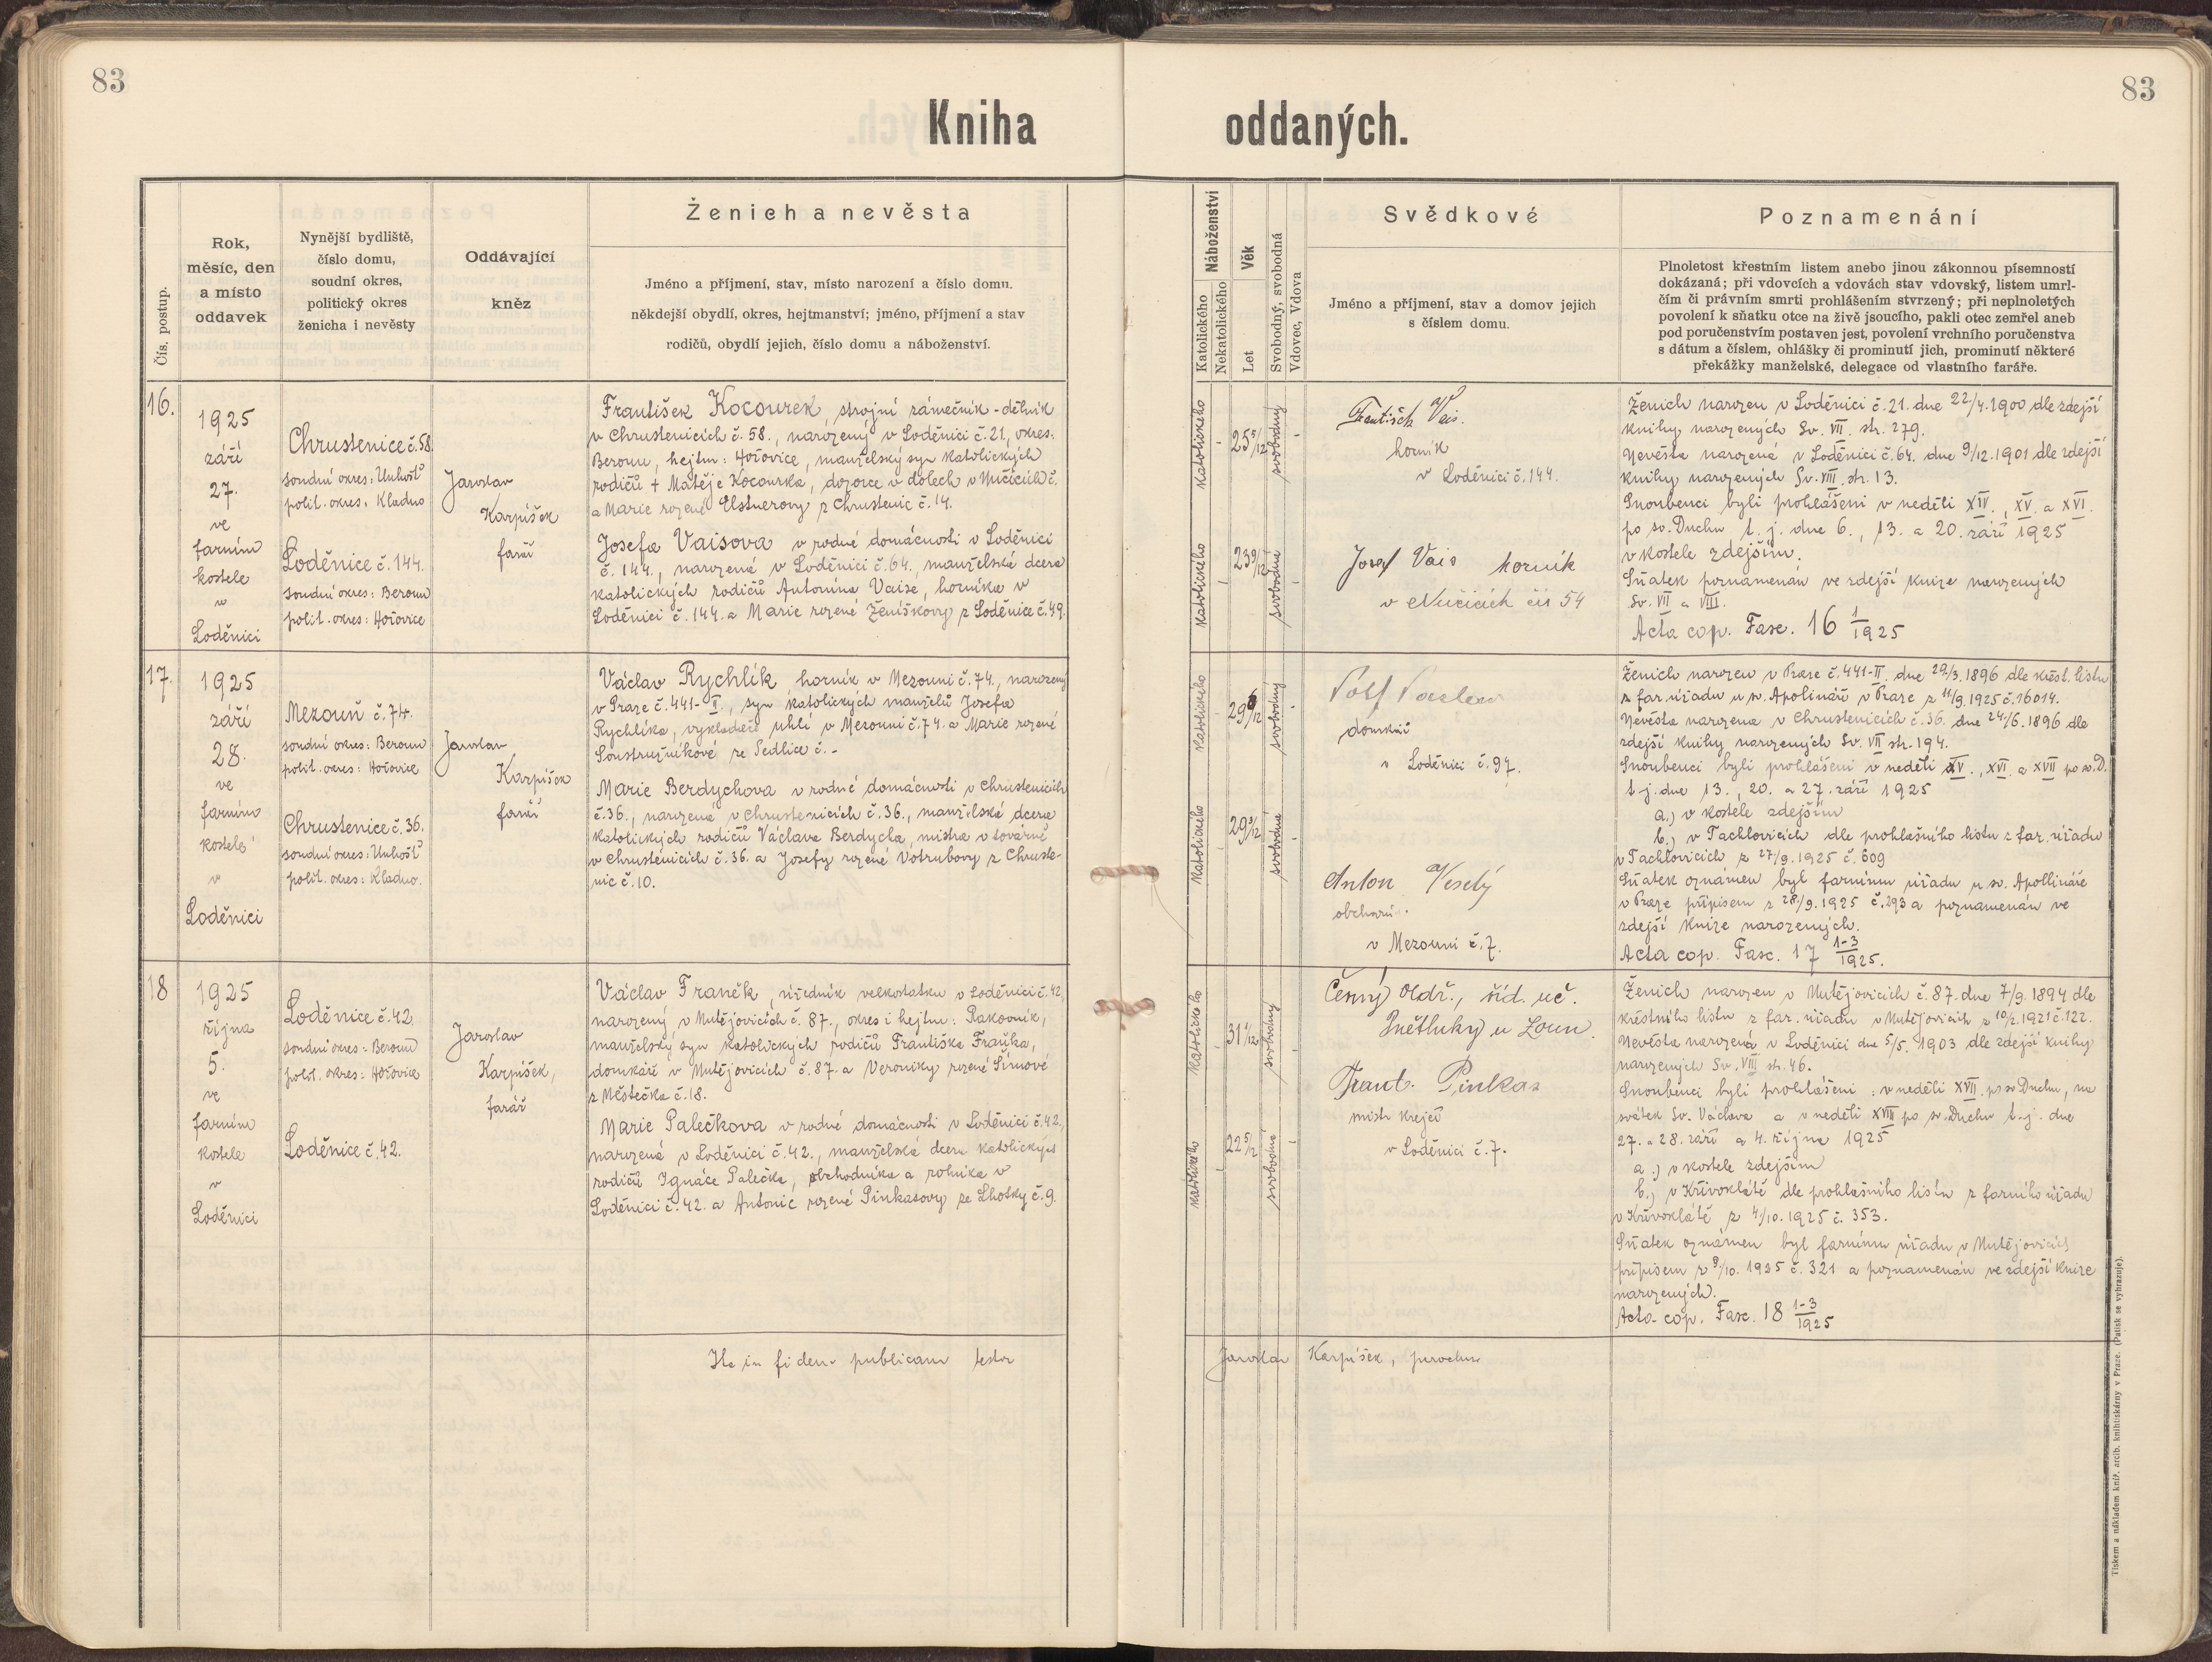 83
83
Kniha oddaných.
Čís. postup.
Rok,
měsíc, den
a místo
oddavek
Nynější bydliště,
číslo domu,
soudní okres,
politický okres
ženicha i nevěsty
Oddávající
kněz
Ženich a nevěsta
Jméno a příjmení, stav, místo narození a číslo domu.
někdejší obydlí, okres, hejtmanství; jméno, příjmení a stav
rodičů, obydlí jejich, číslo domu a náboženství.
Náboženství
Katolického
Nekatolického
Věk
Let
Svobodný, svobodná
Vdovec, Vdova
Svědkové
Jméno a příjmení, stav a domov jejich
s číslem domu.
Poznamenání
Plnoletost křestním listem anebo jinou zákonnou písemností
dokázaná; při vdovcích a vdovách stav vdovský, listem umrl-
čím či právním smrti prohlášením stvrzený; při neplnoletých
povolení k sňatku otce na živě jsoucího, pakli otec zemřel aneb
pod poručenstvím postaven jest, povolení vrchního poručenstva
s dátum a číslem, ohlášky či prominutí jich, prominutí některé
překážky manželské, delegace od vlastního faráře.
16.
1925
září
27.
ve
farním
kostele
v
Loděnici
Chrustenice č. 58.
soudní okres: Unhošť
polit. okres: Kladno
Loděnice č. 144.
soudní okres: Beroun
polit. okres: Hořovice
Jaroslav
Karpíšek
farář
František Kocourek, strojní zámečník - dělník
v Chrustenicích č. 58., narozený v Loděnici č. 21, okres:
Beroun, hejtm: Hořovice, manželský syn katolických
rodičů + Matěje Kocourka, dozorce v dolech v Nučicích č.
a Marie rozené Elsnerovy z Chrustenic č. 14.
Josefa Vaisova v rodné domácnosti v Loděnici
č. 144., narozená v Loděnici č. 64., manželská dcera
katolických rodičů Antonína Vaise, horníka v
Loděnici č. 144. a Marie rozené Ženíškovy z Loděnice č. 49.
katolického
25 5/12
svobodný
katolického
23 9/12
svobodná
František Vais.
horník
v Loděnici č. 144.
Josef Vais horník
v Nučicích čís 54
Ženich narozen v Loděnici č. 21. dne 22/4. 1900 dle zdejší
knihy narozených Sv. VII. str. 279.
Nevěsta narozená v Loděnici č. 64. dne 9/12. 1901 dle zdejší
knihy narozených Sv. VIII. str. 13.
Snoubenci byli prohlášeni v neděli XIV., XV. a XVI.
po sv. Duchu t. j. dne 6., 13. a 20. září 1925
v kostele zdejším.
Sňatek poznamenán ve zdejší knize narozených
Sv. VII a VIII.
Acta cop. Fasc. 16 1/1925
17.
1925
září
28.
ve
farním
kostele
v
Loděnici
Mezouň č. 74.
soudní okres: Beroun
polit. okres: Hořovice
Chrustenice č. 36.
soudní okres: Unhošť
polit. okres: Kladno.
Jaroslav
Karpíšek
farář
Václav Rychlík, horník v Mezouni č. 74., narozený
v Praze č. 441-II., syn katolických manželů Josefa
Rychlíka, vykladače uhlí v Mezouni č. 74. a Marie rozené
Soustružníkové ze Sedlice č. -
Marie Berdychova v rodné domácnosti v Chrustenicích
č. 36., narozená v Chrustenicích č. 36., manželská dcera
katolických rodičů Václava Berdycha, mistra v továrně
v Chrustenicích č. 36. a Josefy rozené Votrubovy z Chruste-
nic č. 10.
katolického
29 6/12
svobodný
katolického
29 3/12
svobodná
domkář
v Loděnici č. 97.
Anton Veselý
obchod.
v Mezouni č. 7.
Ženich narozen v Praze č. 441-II. dne 29/3. 1896 dle křest. listu
z far. úřadu u sv. Apolináře v Praze z 11/9. 1925 č. 16014.
Nevěsta narozena v Chrustenicích č. 36. dne 24/6. 1896 dle
zdejší knihy narozených Sv. VII str. 194.
Snoubenci byli prohlášeni v neděli XV., XVI. a XVII po sv. D.
t. j. dne 13., 20. a 27. září 1925
a.) v kostele zdejším
b.) v Tachlovicích dle prohlašního listu z far. úřadu
v Tachlovicích z 27/9. 1925 č. 609
Sňatek oznámen byl farnímu úřadu u sv. Apollináře
v Praze přípisem z 28/9. 1925 č. 293 a poznamenán ve
zdejší knize narozených.
Acta cop. Fasc. 17 1-3/1925.
18
1925
října
5.
ve
farním
kostele
v
Loděnici
Loděnice č. 42
soudní okres: Beroun
polit. okres: Hořovice
Loděnice č. 42.
Jaroslav
Karpíšek,
farář
Václav Franěk, úředník velkostatku v Loděnici č. 42,
narozený v Mutějovicích č. 87., okres i hejtm: Rakovník,
manželský syn katolických rodičů Františka Fraňka,
domkáře v Mutějovicích č. 87. a Veroniky rozené Šímové
z Městečka č. 18.
Marie Palečkova v rodné domácnosti v Loděnici č. 42.,
narozená v Loděnici č. 42., manželská dcera katolických
rodičů Ignáce Palečka, obchodníka a rolníka v
Loděnici č. 42. a Antonie rozené Pinkasovy ze Lhotky č. 9.
katolického
31 1/12
svobodný
katolického
22 5/12
svobodná
Černý Oldř., říd. uč.
Lnětluky u Loun.
Frant. Pinkas
mistr krejčí
v Loděnici č. 7.
Ženich narozen v Mutějovicích č. 87. dne 7/9. 1894 dle
křestního listu z far. úřadu v Mutějovicích z 10/2. 1921 č. 122.
Nevěsta narozená v Loděnici dne 5/5. 1903 dle zdejší knihy
narozených Sv. VIII str. 46.
Snoubenci byli prohlášeni: v neděli XVII. po sv Duchu, na
svátek Sv. Václava a v neděli XVIII po sv. Duchu t. j. dne
27. a 28. září a 4. října 1925
a.) v kostele zdejším
b.) v Křivoklátě dle prohlašního listu z farního úřadu
v Křivoklátě z 4/10. 1925 č. 353.
Sňatek oznámen byl farnímu úřadu v Mutějovicích
přípisem z 9/10. 1925 č. 321 a poznamenán ve zdejší knize
narozených.
Acta cop. Fasc. 18 1-3/1925
Ita in fidem publicam testor Jaroslav Karpíšek, parochus
Tiskem a nákladem kníž. arcib. knihtiskárny v Praze. (Patisk se vyhrazuje).